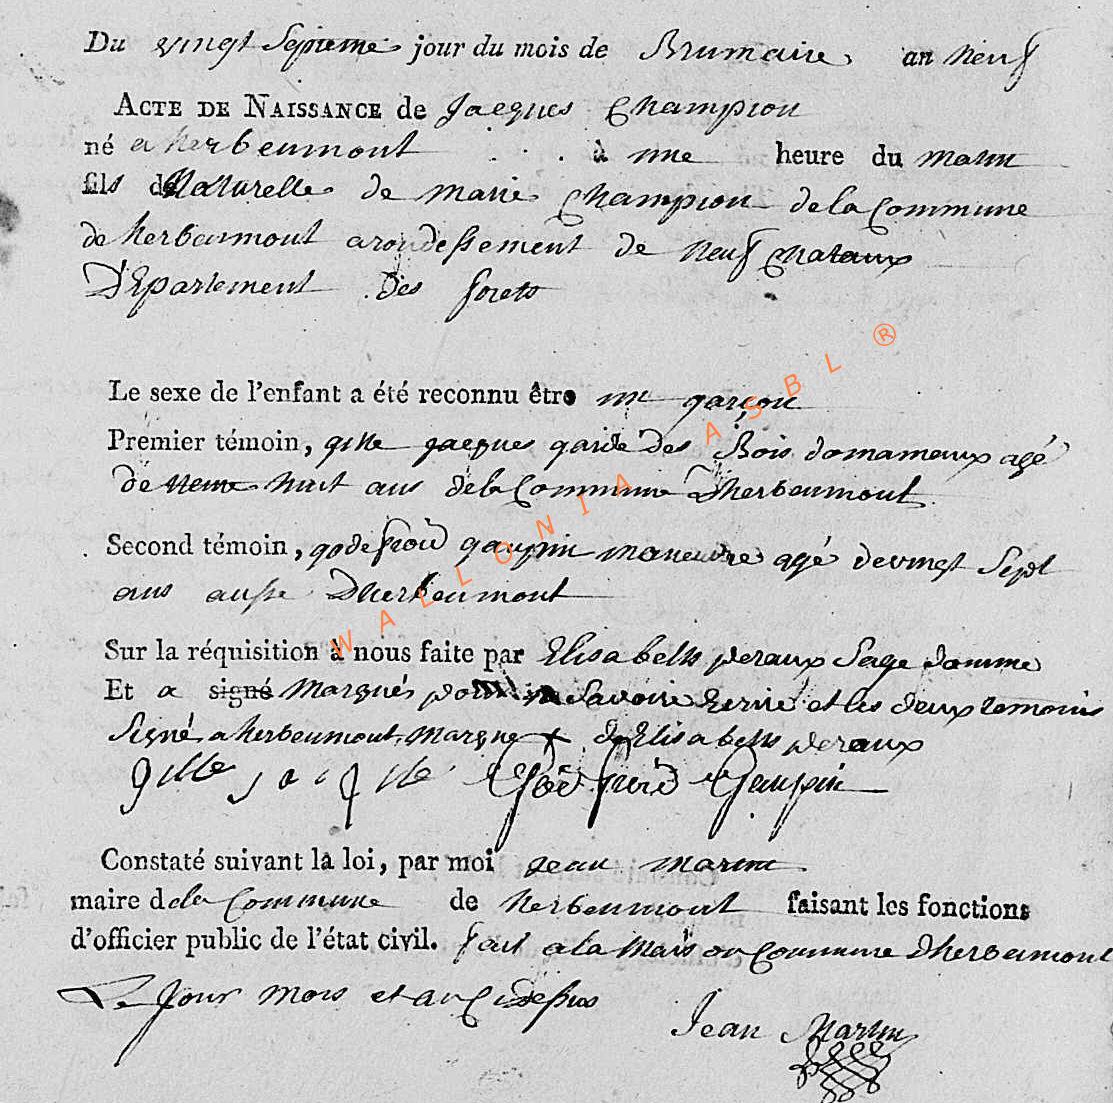 Du vingt Septieme jour du mois de Brumaire an neuf
ACTE DE NAISSANCE de Jacques Champion
né a herbeumont à une heure du matin
fils de Naturelle de marie Champion de la Commune
de herbeumont arondessement de neufchataux
D'Epartement des forets
Le sexe de l'enfant a été reconnu être un garçon
Premier témoin, gille jacques garde des Bois domameaux agé
de huit ans de la Commune Dherbeumont
Second témoin, godefroid gaupin maneuvre agé de vingt Sept
ans ausse Dherbeumont
Sur la réquisition à nous faite par Elisabeth peraux Sage damme
Et a signé Marqués Savoire Ecrire et les deux temoins
Signé a herbeumont Marque + de Elisabeth peraux
gille Godfroid Gaupin
Constaté suivant la loi, par moi Jean Martin
maire de la Commune de herbeumont faisant les fonctions
d'officier public de l'état civil. fait a la Maison Commune Dherbeumont
Le Jour Mois et an Cidessus
Jean Martin
WALLONIA ASBL ®